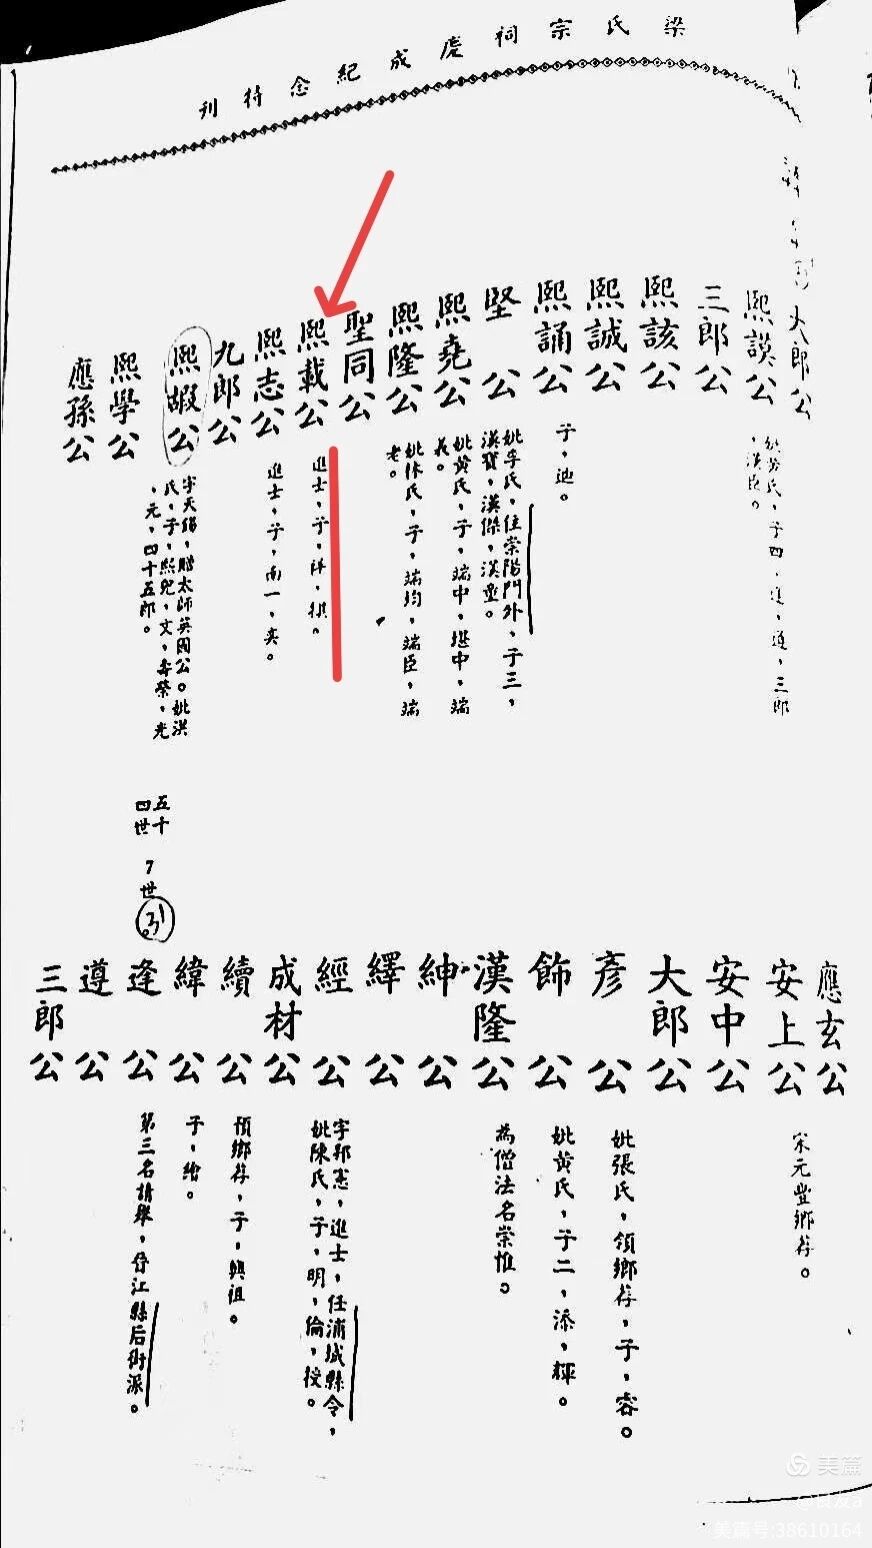 梁氏宗祠慶成紀念特刊
大郎公
熙謨公
妣黃氏，子四，
三郎
，漢臣。
三郎公
熙該公
熙誠公
熙誦公
子，迪。
堅公
妣李氏，住崇陽門外，子三，
漢寶，漢傑，漢臺。
熙堯公
妣黃氏，子，端中，堪中，端
義。
熙隆公
妣休氏，子，端均，端臣，端
老。
聖同公
熙載公
進士，子，祥，祺。
熙志公
進士，子，南一，奕。
九郎公
熙嘏公
字天錫，贈太師英國公。妣洪
氏，子，熙兜，文，壽榮，光
，元，四十五郎。
熙學公
應孫公
五十
四世
7世
引
應玄公
宋元豐鄉荐。
安上公
安中公
大郎公
彥公
妣張氏，領鄉荐，子，容。
飾公
妣黃氏，子二，添，輝。
漢隆公
為僧法名崇惟。
紳公
繹公
經公
字邦憲，進士，任浦城縣令，
妣陳氏，子，明，倫，授。
成材公
續公
預鄉荐，子，興祖。
緯公
子，繪。
逢公
第三名請舉，晉江縣后街派。
遵公
三郎公
美篇
@良友a
美篇号:38610164